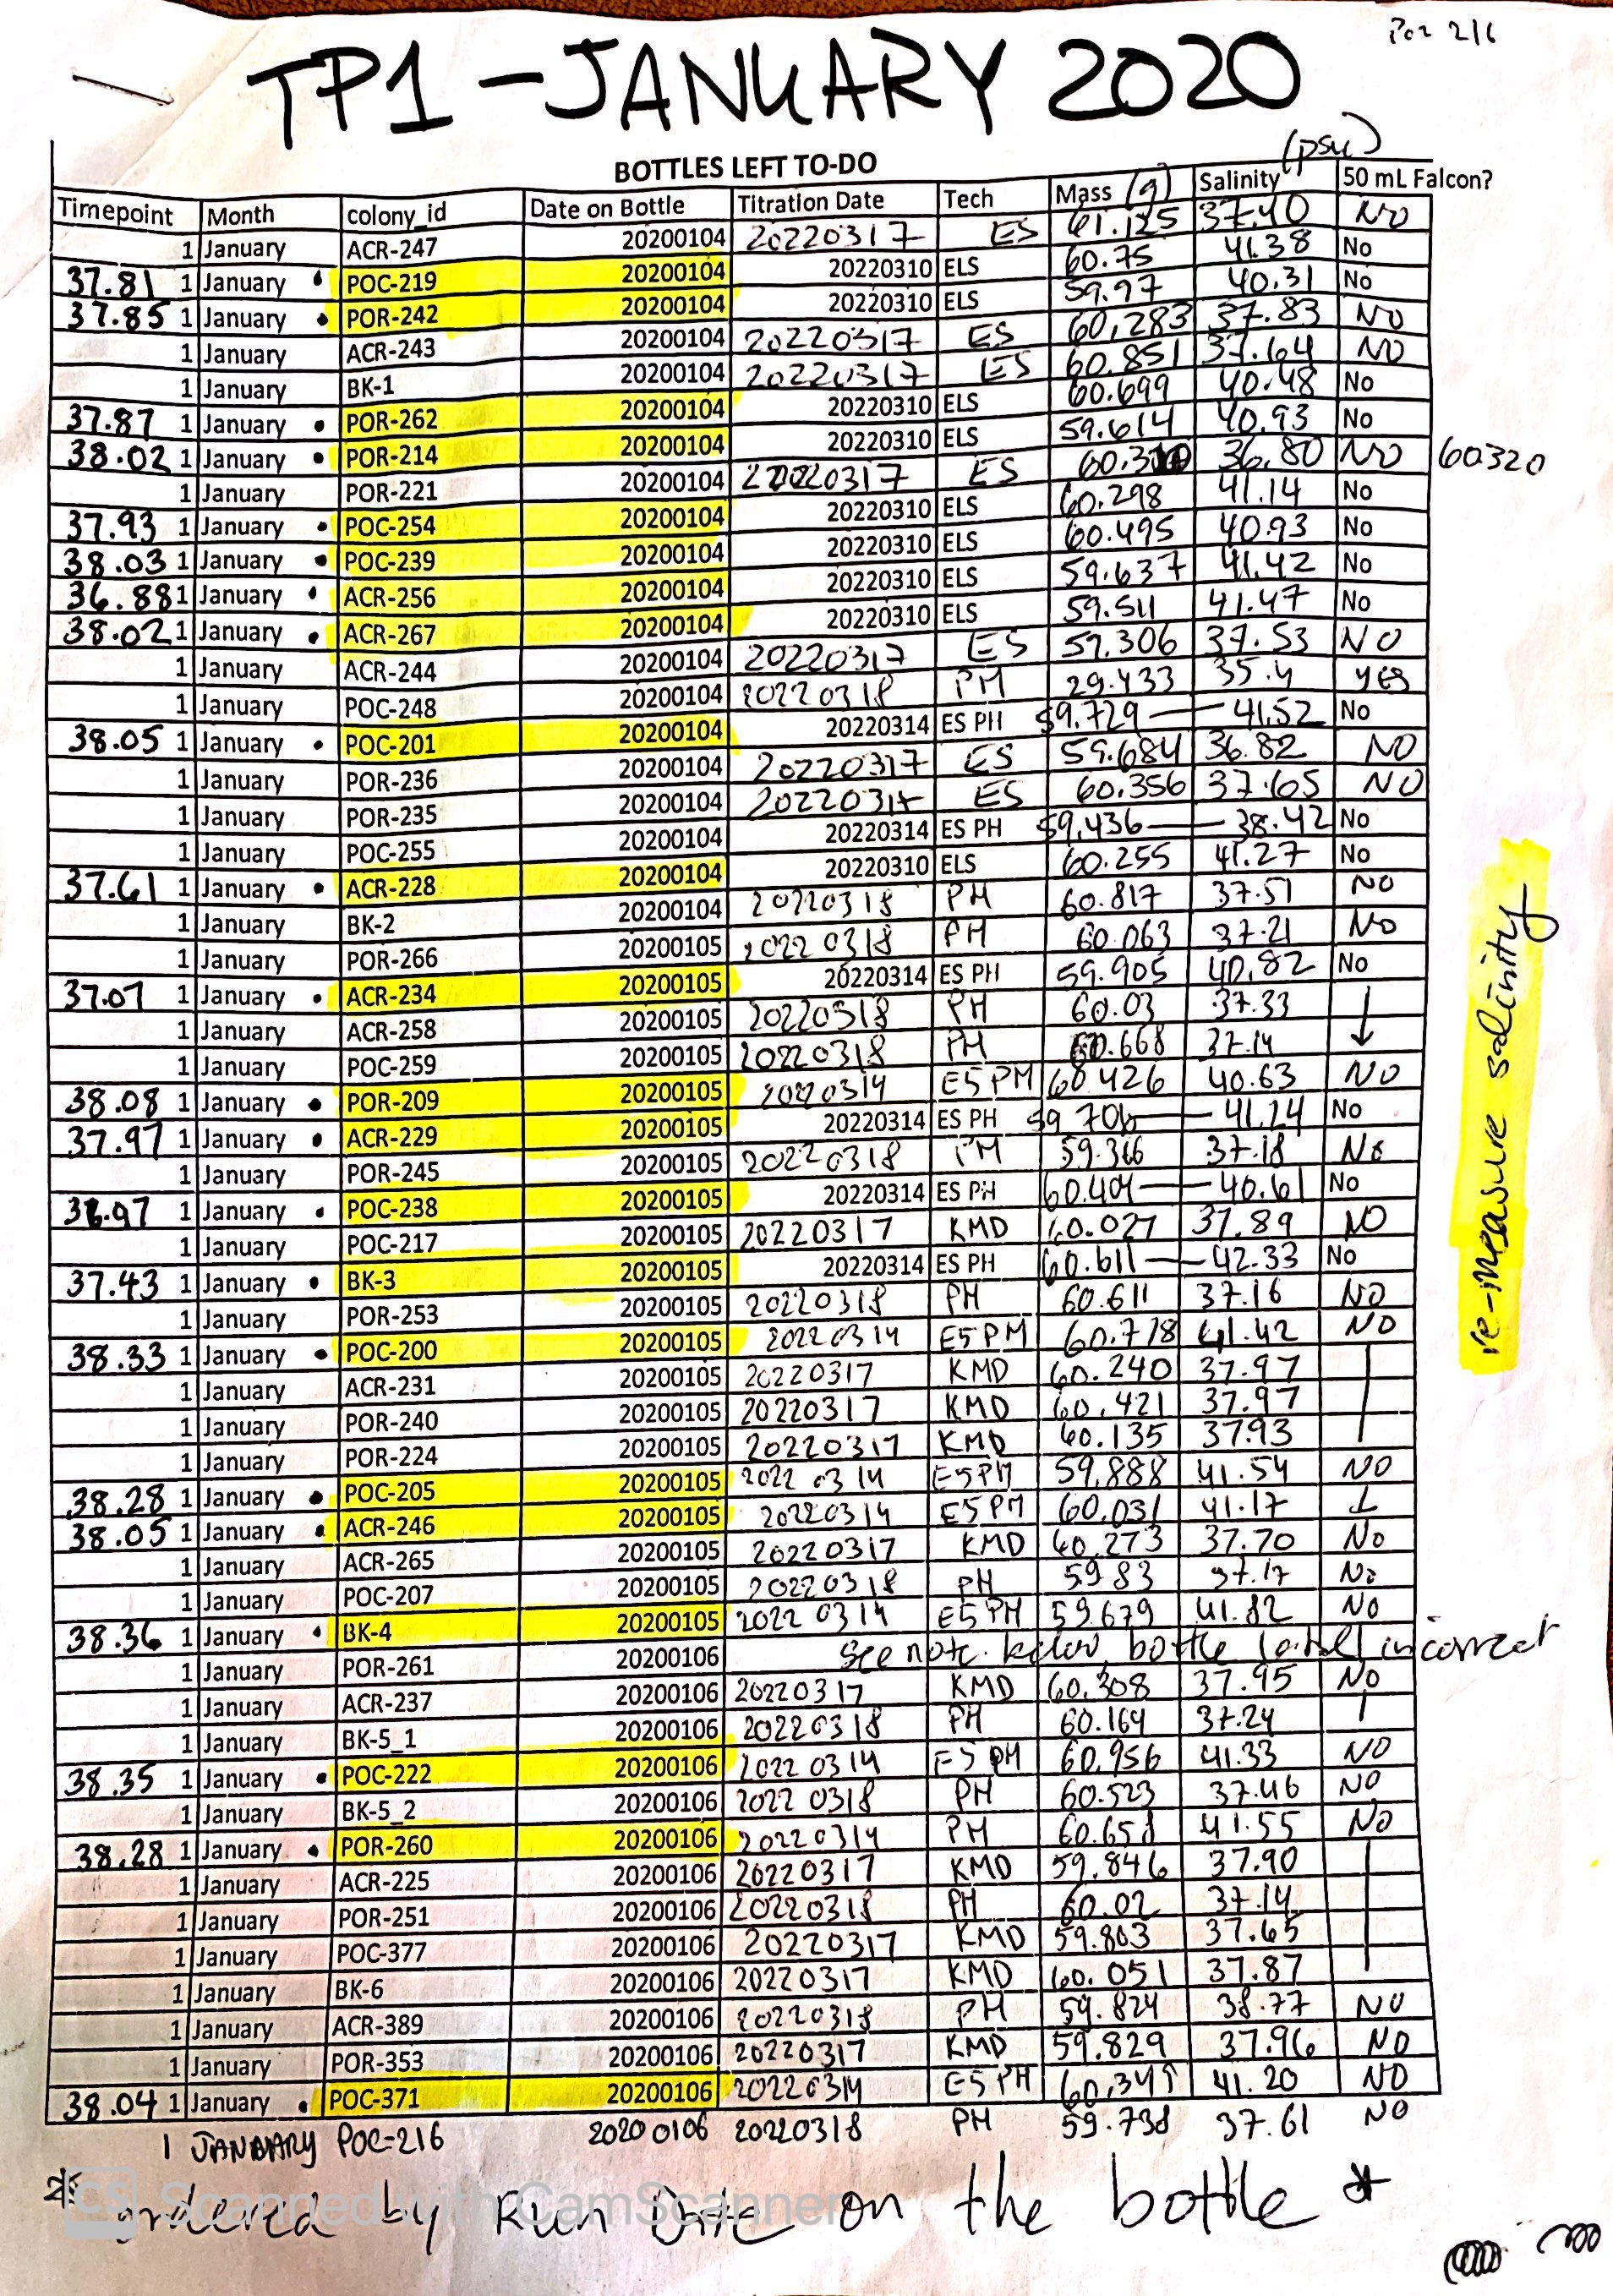 Por 216
TP1 - JANUARY 2020
(psu)
BOTTLES LEFT TO-DO
Timepoint Month colony_id Date on Bottle Titration Date Tech Mass (g) Salinity 50 mL Falcon?
1 January ACR-247 20200104 20220317 ES 61.125 37.40 NO
37.81 1 January • POC-219 20200104 20220310 ELS 60.75 41.38 No
37.85 1 January • POR-242 20200104 20220310 ELS 59.97 40.31 No
1 January ACR-243 20200104 20220317 ES 60.283 37.83 NO
1 January BK-1 20200104 20220317 ES 60.851 37.64 NO
37.87 1 January • POR-262 20200104 20220310 ELS 60.699 40.48 No
38.02 1 January • POR-214 20200104 20220310 ELS 59.614 40.93 No
1 January POR-221 20200104 20220317 ES 36.80 NO 60320
37.93 1 January • POC-254 20200104 20220310 ELS 60.298 41.14 No
38.03 1 January • POC-239 20200104 20220310 ELS 60.495 40.93 No
36.88 1 January • ACR-256 20200104 20220310 ELS 59.637 41.42 No
38.02 1 January • ACR-267 20200104 20220310 ELS 59.511 41.47 No
1 January ACR-244 20200104 20220317 ES 59.306 37.53 NO
1 January POC-248 20200104 20220318 PH 29.433 35.4 yes
38.05 1 January • POC-201 20200104 20220314 ES PH 59.729 — 41.52 No
1 January POR-236 20200104 20220317 ES 59.684 36.82 NO
1 January POR-235 20200104 ES 60.356 37.65 NO
1 January POC-255 20200104 20220314 ES PH 59.436 — 38.42 No
37.61 1 January • ACR-228 20200104 20220310 ELS 60.255 41.27 No
1 January BK-2 20200104 20220318 PH 60.817 37.51 NO
1 January POR-266 20200105 20220318 PH 60.063 37.21 No
37.07 1 January • ACR-234 20200105 20220314 ES PH 59.905 40.82 No
1 January ACR-258 20200105 20220318 PH 60.03 37.33 ↓
1 January POC-259 20200105 20220318 PH 60.668 37.14
38.08 1 January • POR-209 20200105 20220314 ES PM 60.426 40.63 NO
37.97 1 January • ACR-229 20200105 20220314 ES PH 59.706 — 41.24 No
1 January POR-245 20200105 20220318 PM 59.366 37.18 No
1 January • POC-238 20200105 20220314 ES PH 60.404 — 40.61 No
1 January POC-217 20200105 20220317 KMD 60.027 37.89 NO
37.43 1 January • BK-3 20200105 20220314 ES PH 60.611 — 42.33 No
1 January POR-253 20200105 20220318 PH 60.611 37.16 NO
38.33 1 January • POC-200 20200105 20220314 ES PM 60.778 41.42 NO
1 January ACR-231 20200105 20220317 KMD 60.240 37.97
1 January POR-240 20200105 20220317 KMD 60.421 37.97
1 January POR-224 20200105 20220317 KMD 60.135 37.93
38.28 1 January • POC-205 20200105 20220314 ESPM 59.888 41.54 NO
38.05 1 January • ACR-246 20200105 20220314 ESPM 60.031 41.17 ↓
1 January ACR-265 20200105 20220317 KMD 60.273 37.70 No
1 January POC-207 20200105 20220318 PH 59.83 37.17 No
38.36 1 January • BK-4 20200105 20220314 ESPH 59.679 41.82 NO
1 January POR-261 20200106 See note below, bottle label incorrect
1 January ACR-237 20200106 20220317 KMD 60.308 37.95 NO
1 January BK-5_1 20200106 20220318 PH 60.164 37.24
38.35 1 January • POC-222 20200106 20220314 ES PH 60.956 41.33 NO
1 January BK-5_2 20200106 20220318 PH 60.523 37.46 NO
38.28 1 January • POR-260 20200106 20220314 PH 60.658 41.55 NO
1 January ACR-225 20200106 20220317 KMD 59.846 37.90
1 January POR-251 20200106 20220318 PH 60.02 37.14
1 January POC-377 20200106 20220317 KMD 59.803 37.65
1 January BK-6 20200106 20220317 KMD 60.051 37.87
1 January ACR-389 20200106 20220318 PH 59.824 38.77 NO
1 January POR-353 20200106 20220317 KMD 59.829 37.96 NO
38.04 1 January • POC-371 20200106 20220314 ESPH 60.349 41.20 NO
1 JANUARY POC-216 20200106 20220318 PH 59.738 37.61 NO
* ordered by Run Date on the bottle *
CS Scanned with CamScanner
re-measure salinity